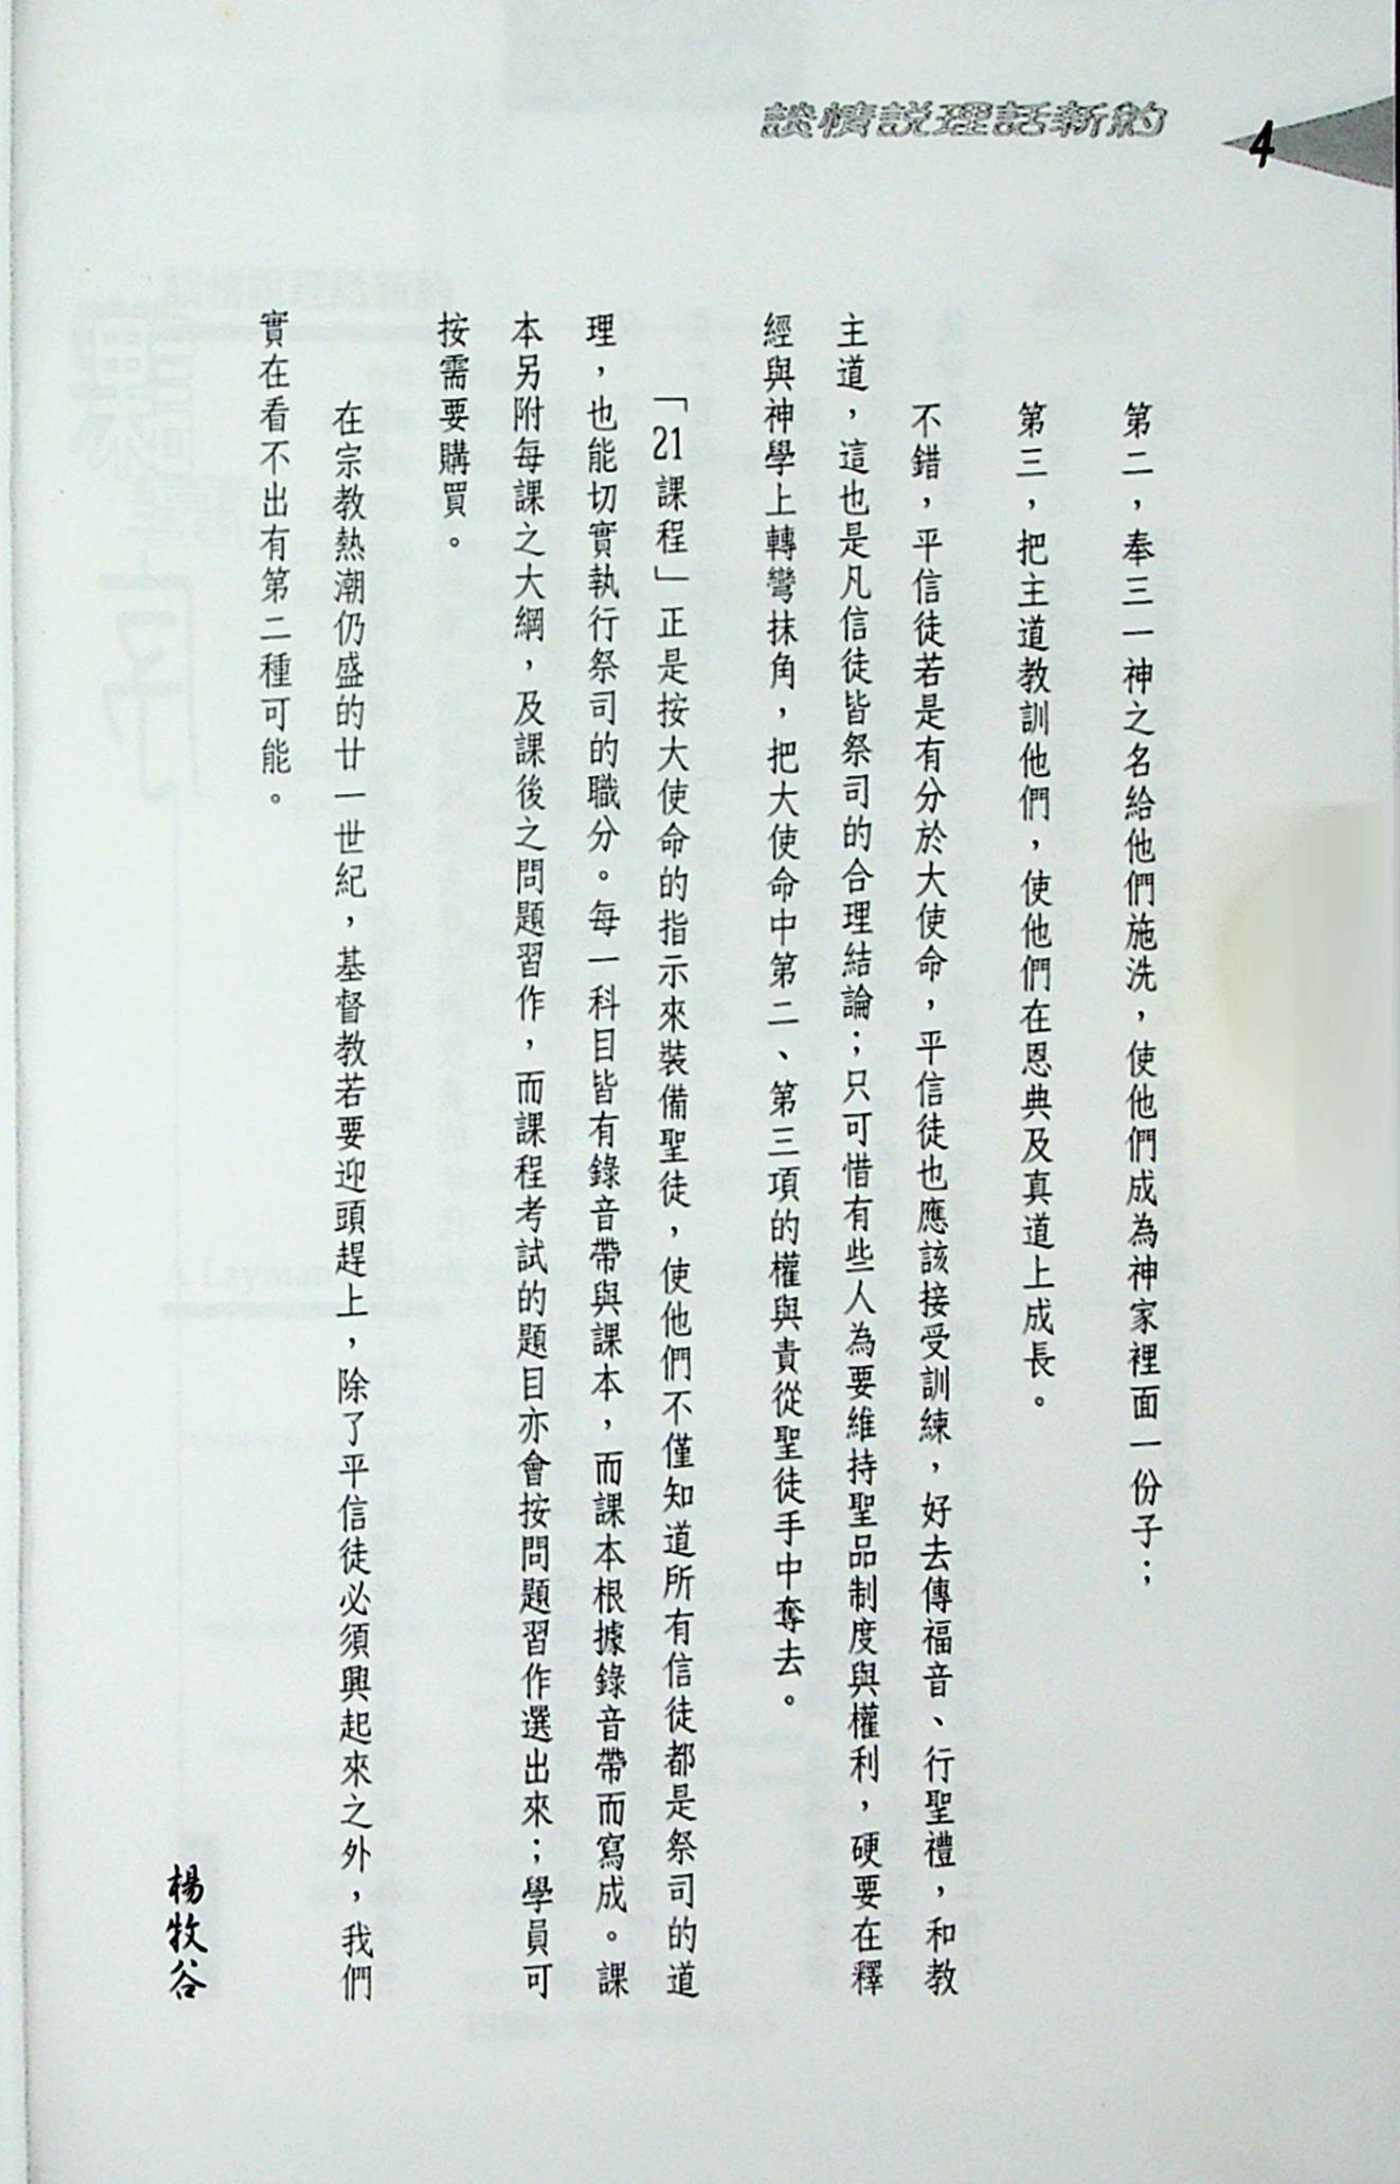 談情説理話新約
4
第二，奉三一神之名給他們施洗，使他們成為神家裡面一份子；
第三，把主道教訓他們，使他們在恩典及真道上成長。
不錯，平信徒若是有分於大使命，平信徒也應該接受訓練，好去傳福音、行聖禮，和教
主道，這也是凡信徒皆祭司的合理結論；只可惜有些人為要維持聖品制度與權利，硬要在釋
經與神學上轉彎抹角，把大使命中第二、第三項的權與責從聖徒手中奪去。
「21課程」正是按大使命的指示來裝備聖徒，使他們不僅知道所有信徒都是祭司的道
理，也能切實執行祭司的職分。每一科目皆有錄音帶與課本，而課本根據錄音帶而寫成。課
本另附每課之大綱，及課後之問題習作，而課程考試的題目亦會按問題習作選出來；學員可
按需要購買。
在宗教熱潮仍盛的廿一世紀，基督教若要迎頭趕上，除了平信徒必須興起來之外，我們
實在看不出有第二種可能。
楊牧谷